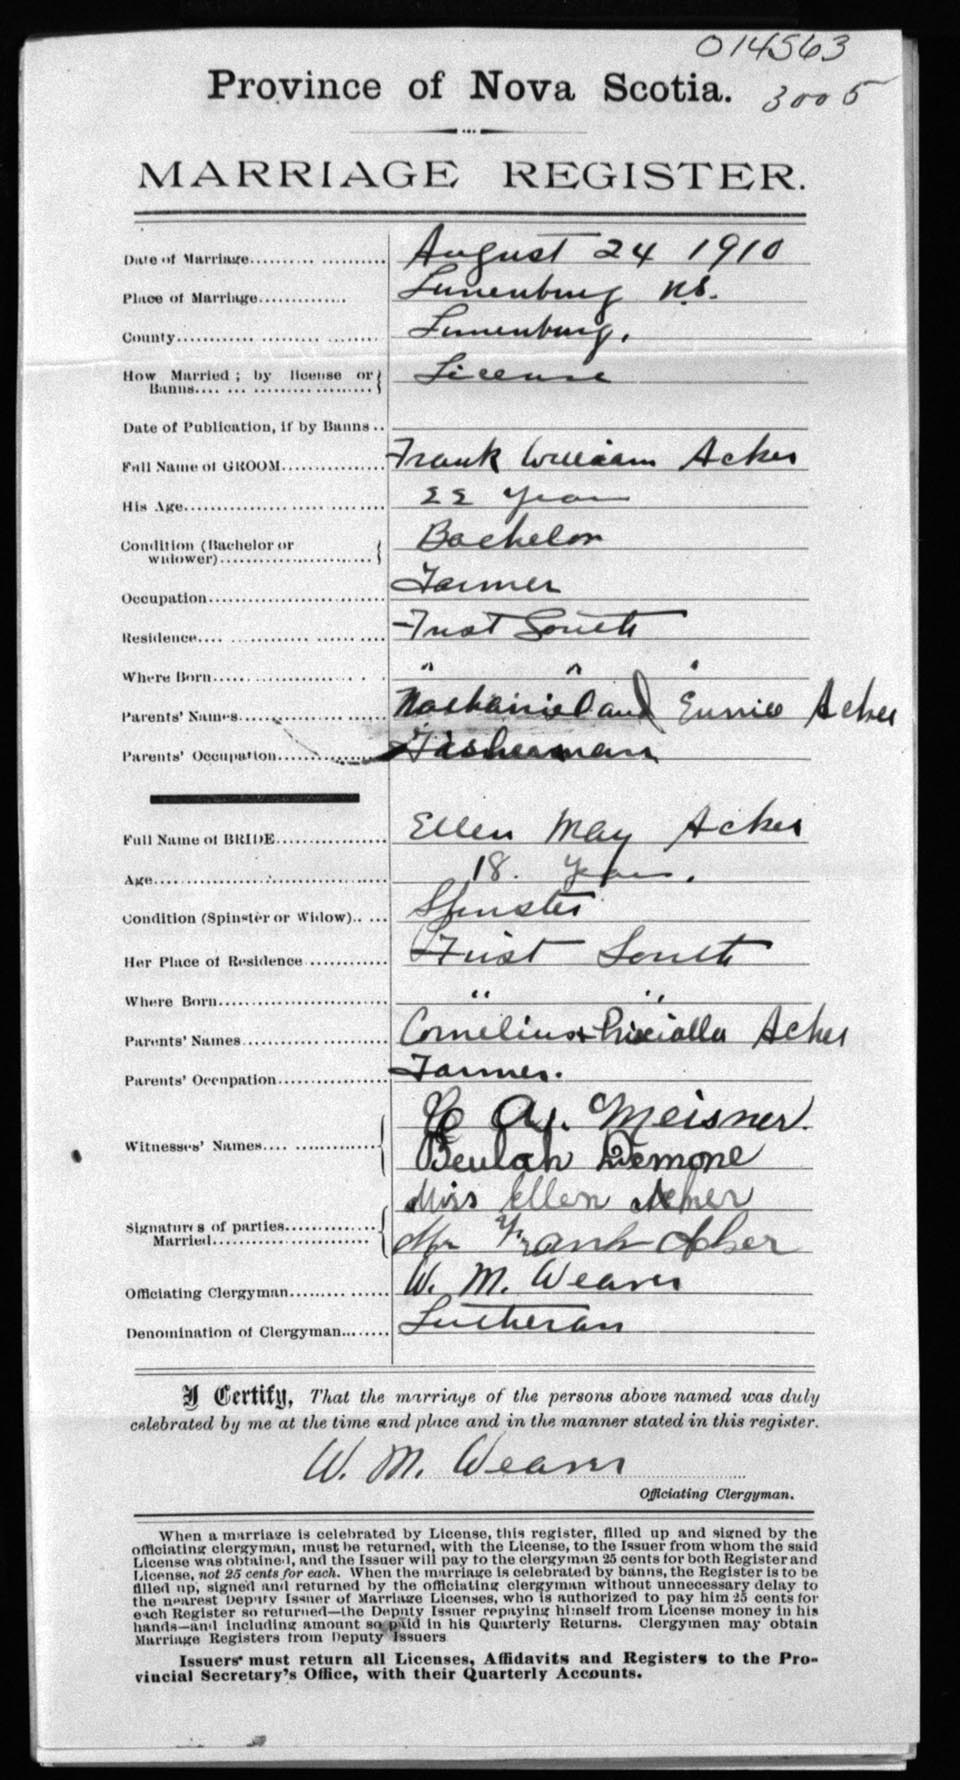 014563
Province of Nova Scotia. 3005
MARRIAGE REGISTER.
Date of Marriage.................. August 24 1910
Place of Marriage.............. Lunenburg N.S.
County.............................. Lunenburg.
How Married ; by license or Banns.................. License
Date of Publication, if by Banns..
Full Name of GROOM............... Frank William Acker
His Age.............................. 22 Years
Condition (Bachelor or widower)...................... Bachelor
Occupation......................... Farmer
Residence......................... First South
Where Born......................... " " "
Parents' Names.................... Nathaniel and Eunice Acker
Parents' Occupation............... Fisherman
Full Name of BRIDE................ Ellen May Acker
Age.................................. 18. Years.
Condition (Spinster or Widow)..... Spinster
Her Place of Residence............ First South
Where Born......................... " "
Parents' Names..................... Cornelius + Priscialla Acker
Parents' Occupation................ Farmer.
Witnesses' Names.................. Meisner.
Beulah Demone
Signatures of parties Married...................... Miss Ellen Acker
Mr Frank Acker
Officiating Clergyman.............. W. M. Weaver
Denomination of Clergyman........ Lutheran
I Certify, That the marriage of the persons above named was duly
celebrated by me at the time and place and in the manner stated in this register.
W. M. Weaver
Officiating Clergyman.
When a marriage is celebrated by License, this register, filled up and signed by the
officiating clergyman, must be returned, with the License, to the Issuer from whom the said
License was obtained, and the Issuer will pay to the clergyman 25 cents for both Register and
License, not 25 cents for each. When the marriage is celebrated by banns, the Register is to be
filled up, signed and returned by the officiating clergyman without unnecessary delay to
the nearest Deputy Issuer of Marriage Licenses, who is authorized to pay him 25 cents for
each Register so returned—the Deputy Issuer repaying himself from License money in his
hands—and including amount so paid in his Quarterly Returns. Clergymen may obtain
Marriage Registers from Deputy Issuers
Issuers must return all Licenses, Affidavits and Registers to the Pro-
vincial Secretary's Office, with their Quarterly Accounts.